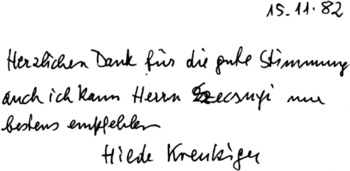 15.11.82
Herzlichen Dank für die gute Stimmung
auch ich kann Herrn nur
bestens empfehlen
Hilde